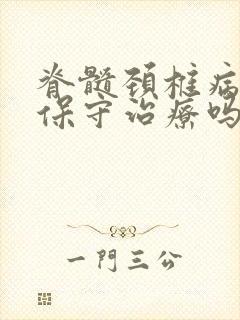 脊髓颈椎病
保守治療吗
一門三公